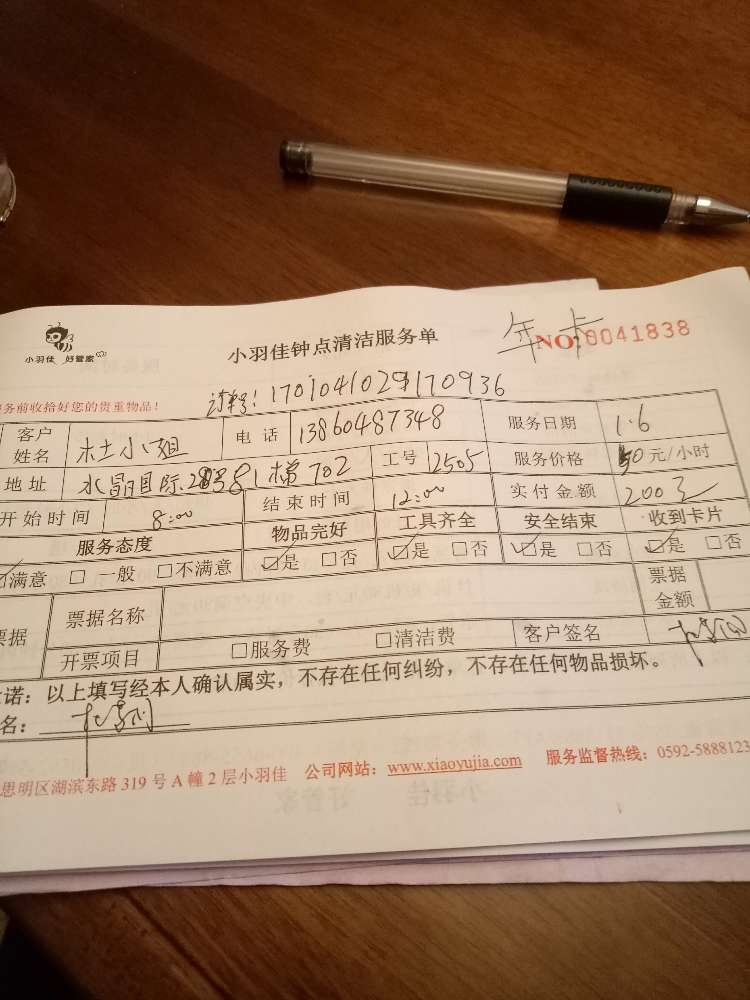 小羽佳 好管家
小羽佳钟点清洁服务单
年卡
NO:0041838
务前收拾好您的贵重物品!
17010410291170936
客户姓名 杜小姐 电话 13860487348 服务日期 1.6
地址 水晶国际 702 工号 2505 服务价格 50元/小时
开始时间 8:00 结束时间 12:00 实付金额 200元
服务态度 物品完好 工具齐全 安全结束 收到卡片
☑满意 □一般 □不满意 ☑是 □否 ☑是 □否 ☑是 □否 ☑是 □否
票据 票据名称 票据金额
开票项目 □服务费 □清洁费 客户签名
诺:以上填写经本人确认属实,不存在任何纠纷,不存在任何物品损坏。
名:
思明区湖滨东路319号A幢2层小羽佳 公司网站:www.xiaoyujia.com 服务监督热线:0592-5888123